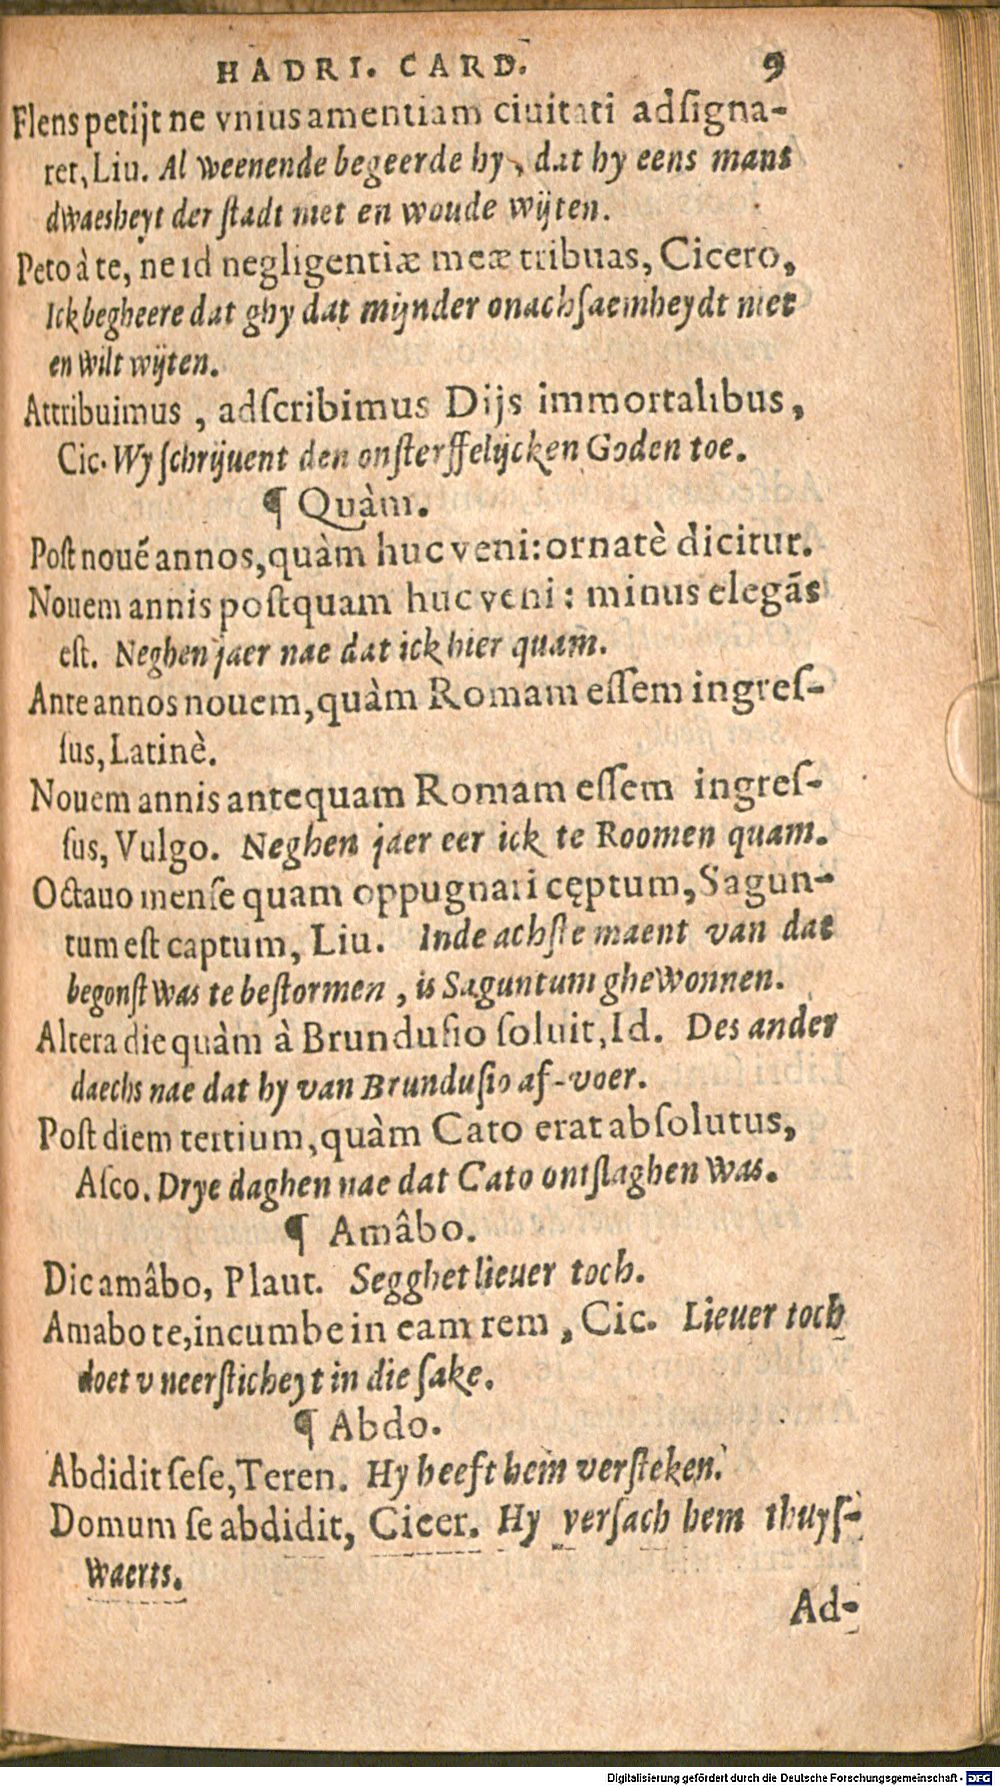 HADRI. CARD. 9
Flens petijt ne vnius amentiam ciuitati adſigna-
ret, Liu. Al weenende begeerde hy, dat hy eens mans
dwaesheyt der ſtadt niet en woude wijten.
Peto à te, ne id negligentiæ meæ tribuas, Cicero,
Ick begheere dat ghy dat mijnder onachſaemheydt niet
en wilt wijten.
Attribuimus, adſcribimus Dijs immortalibus,
Cic. Wy ſchrijuent den onſterffelijcken Goden toe.
¶ Quàm.
Poſt nouẽ annos, quàm huc veni: ornatè dicitur.
Nouem annis poſtquam huc veni: minus elegãs
eſt. Neghen jaer nae dat ick hier quam.
Ante annos nouem, quàm Romam eſſem ingreſ-
ſus, Latinè.
Nouem annis antequam Romam eſſem ingreſ-
ſus, Vulgo. Neghen jaer eer ick te Roomen quam.
Octauo menſe quam oppugnari cęptum, Sagun-
tum eſt captum, Liu. Inde achſte maent van dat
begonſt was te beſtormen, is Saguntum ghewonnen.
Altera die quàm à Brunduſio ſoluit, Id. Des ander
daechs nae dat hy van Brunduſio af-voer.
Poſt diem tertium, quàm Cato erat abſolutus,
Aſco. Drye daghen nae dat Cato ontſlaghen was.
¶ Amâbo.
Dic amâbo, Plaut. Segghet lieuer toch.
Amabo te, incumbe in eam rem, Cic. Lieuer toch
doet v neerſticheyt in die ſake.
¶ Abdo.
Abdidit ſeſe, Teren. Hy heeft hem verſteken.
Domum ſe abdidit, Cicer. Hy verſach hem thuyſ-
waerts.
Ad-
Digitalisierung gefördert durch die Deutsche Forschungsgemeinschaft - DFG